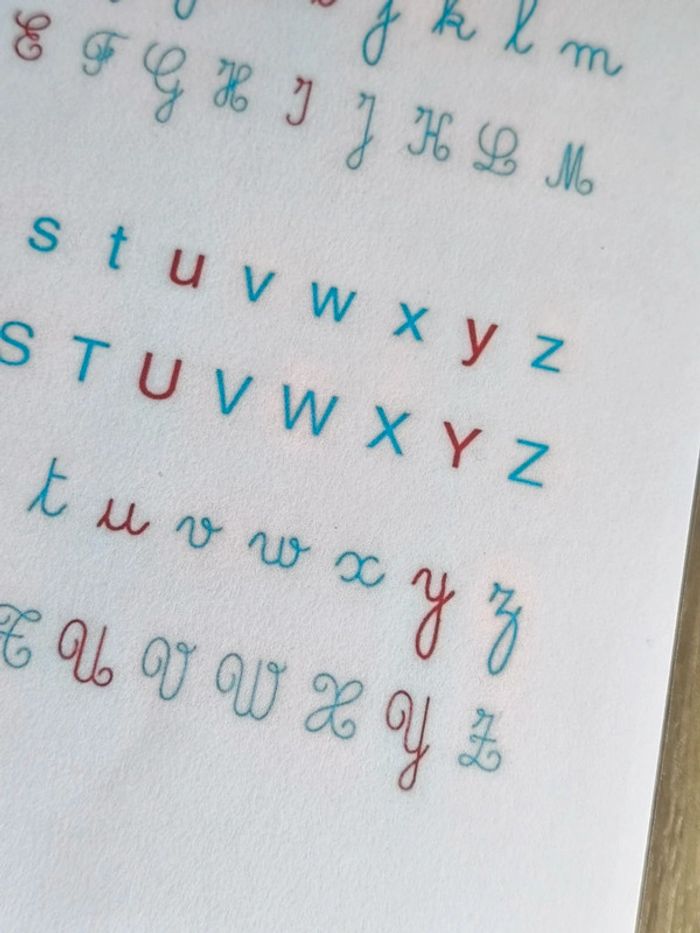 j k l m
E F G H I J K L M
s t u v w x y z
S T U V W X Y Z
t u v w x y z
T U V W X Y Z